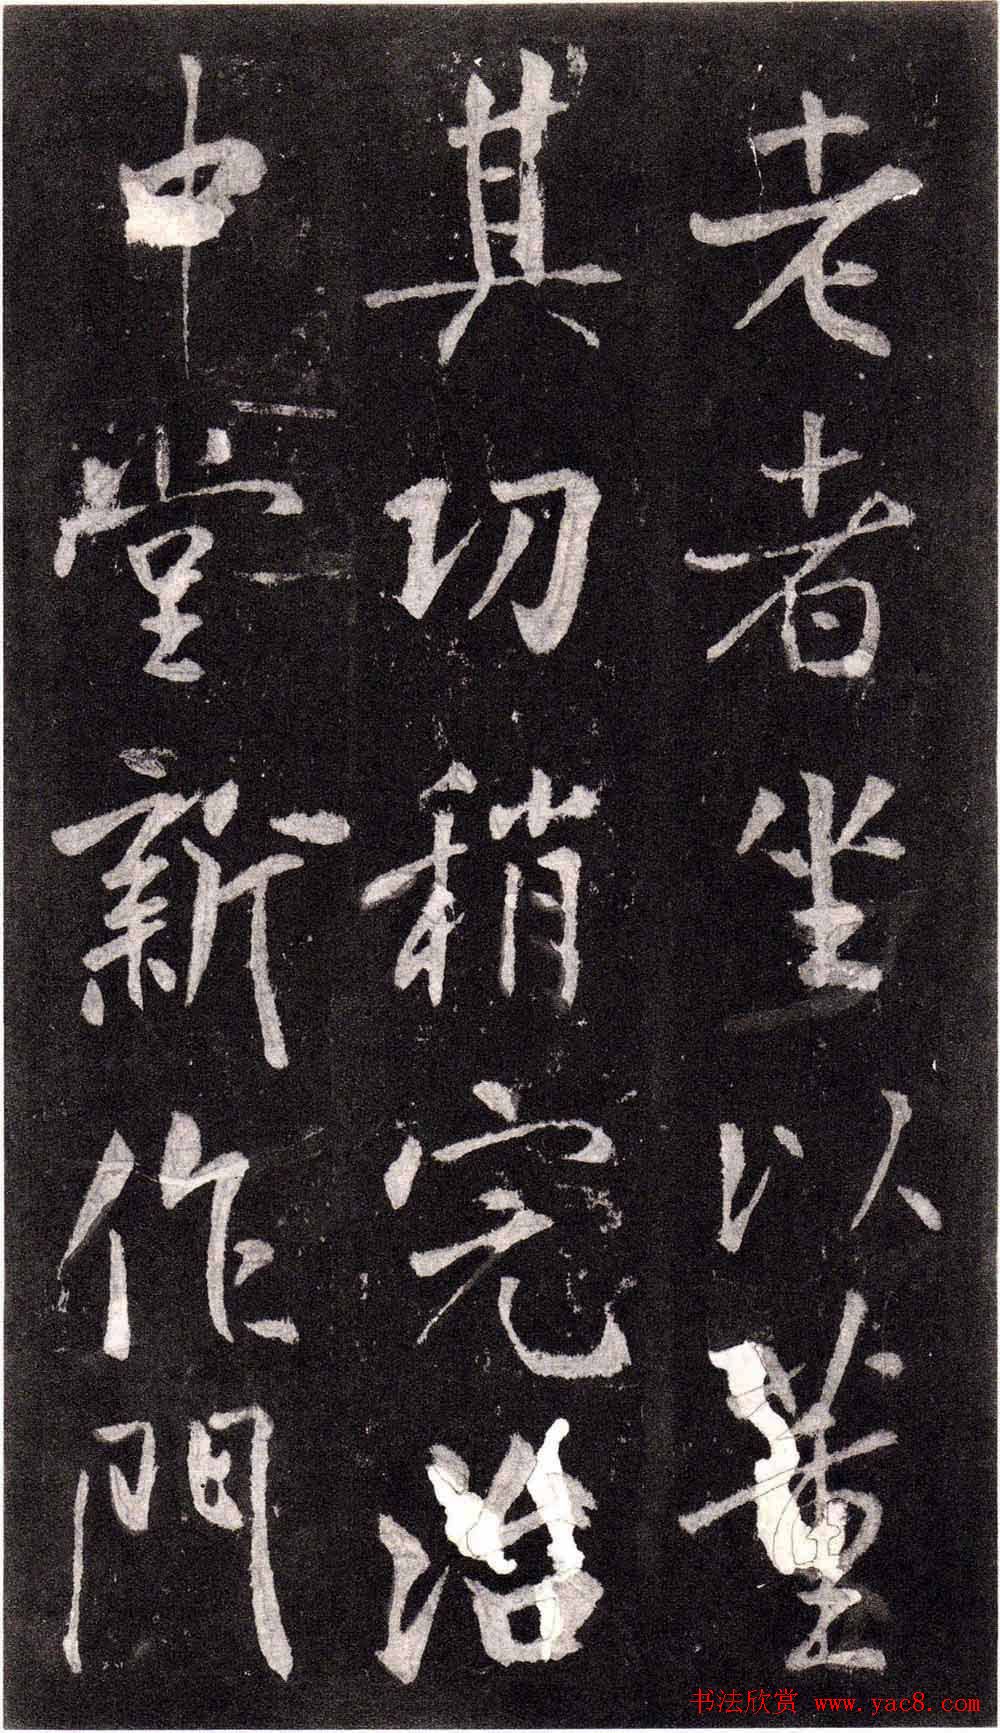 老者坐以董
其功稍完治
中堂新作門
书法欣赏 www.yac8.com